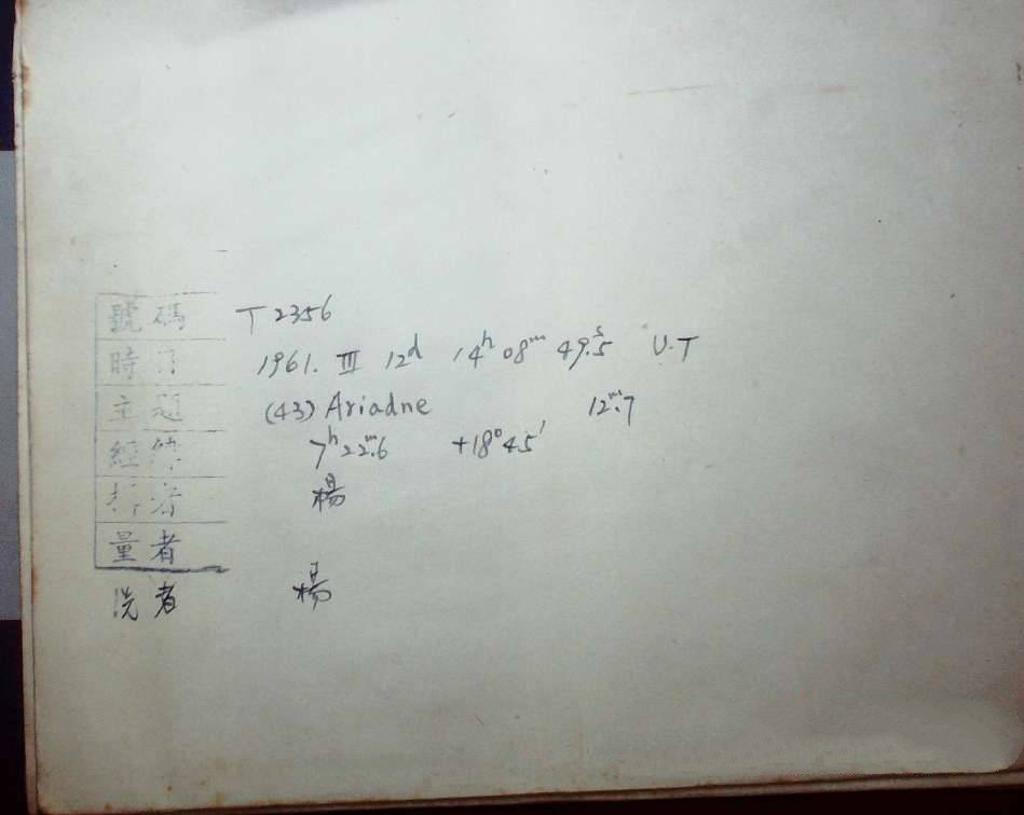 號碼 T 2356
時刁 1961. III 12ᵈ 14ʰ 08ᵐ 49ˢ.5 U.T
主題 (43) Ariadne 12ᵐ.7
經緯 7ʰ 22ᵐ.6 +18° 45′
者 楊
量者
洗者 楊